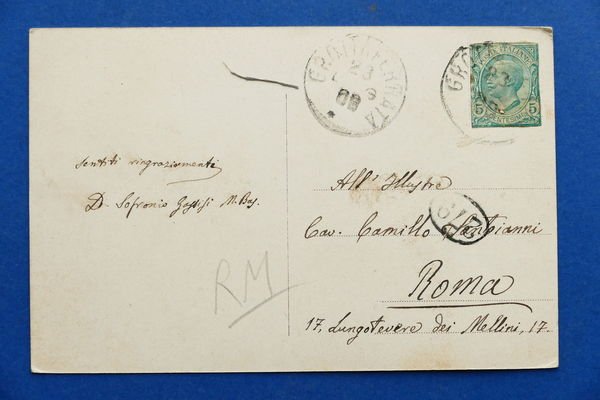 GROTTAFERRATA
23
09
POSTE ITALIANE
5 CENTESIMI 5
sentiti ringraziamenti
D. Sofronio Gassisi M. Bas.
All' Illustre
Cav. Camillo
Roma
17, Lungotevere dei Mellini, 17.
RM